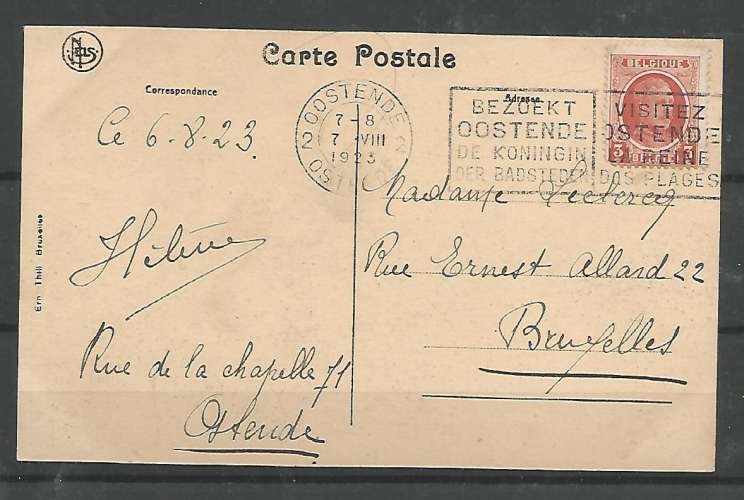 Nels
Carte Postale
Correspondance
Adresse
Ce 6-8-23
Hélène
Rue de la chapelle 71
Ostende
OOSTENDE
7-8
2 7 VIII 2
1923
OSTENDE
BEZOEKT
OOSTENDE
DE KONINGIN
DER BADSTEDEN
VISITEZ
OSTENDE
LA REINE
DES PLAGES
BELGIQUE
BELGIË
Madame Leclercq
Rue Ernest Allard 22
Bruxelles
Ern. Thill Bruxelles